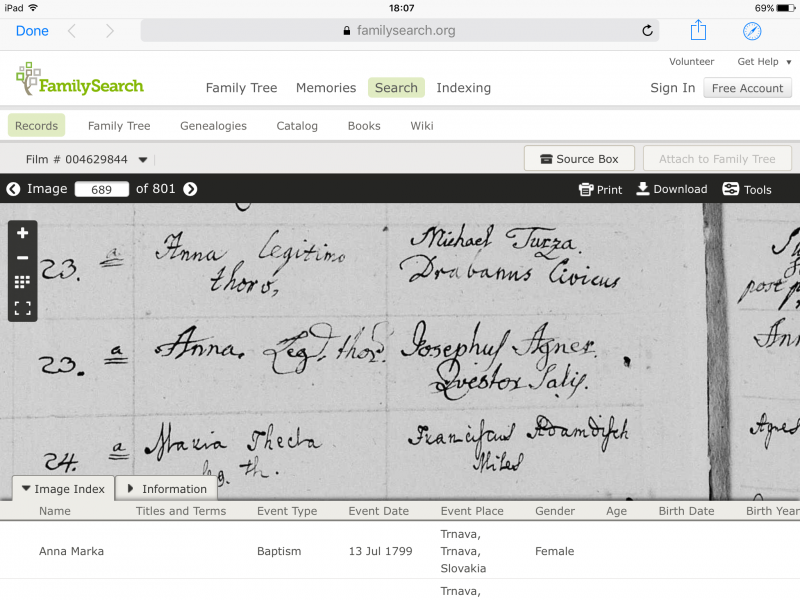 iPad 18:07 69%
Done familysearch.org
Volunteer Get Help
FamilySearch Family Tree Memories Search Indexing Sign In Free Account
Records Family Tree Genealogies Catalog Books Wiki
Film # 004629844 Source Box Attach to Family Tree
Image 689 of 801 Print Download Tools
23. a Anna Legitimo Michael Turza.
thoro, Drabanus Civicus
post
23. a Anna. Leg. thor. Josephus Agner. Ann
Qvestor Salis.
24. a Maria Thecla Franciscus Adamdisch Agnes
leg. th. Miles
Image Index Information
Name Titles and Terms Event Type Event Date Event Place Gender Age Birth Date Birth Year
Trnava,
Anna Marka Baptism 13 Jul 1799 Trnava, Female
Slovakia
Trnava,